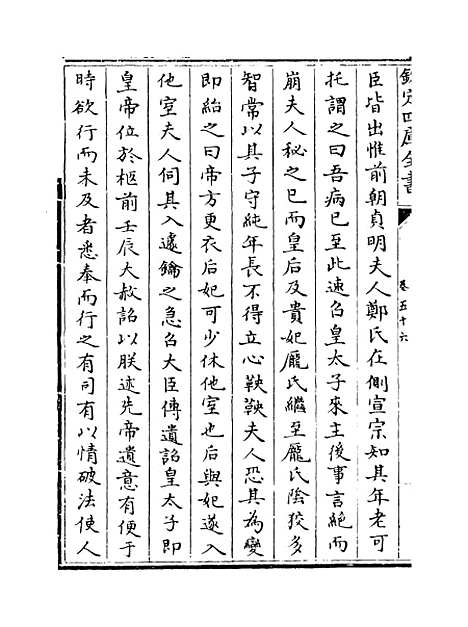 欽定四庫全書
卷五十六
臣皆出惟前朝貞明夫人鄭氏在側宣宗知其年老可
托謂之曰吾病已至此速召皇太子來主後事言絕而
崩夫人秘之已而皇后及貴妃龐氏繼至龐氏陰狡多
智常以其子守純年長不得立心鞅鞅夫人恐其為變
即紿之曰帝方更衣后妃可少休他室也后與妃遂入
他室夫人伺其入遽鑰之急召大臣傳遺詔皇太子即
皇帝位於柩前壬辰大赦詔以朕述先帝遺意有便于
時欲行而未及者悉奉而行之有司有以情破法使人